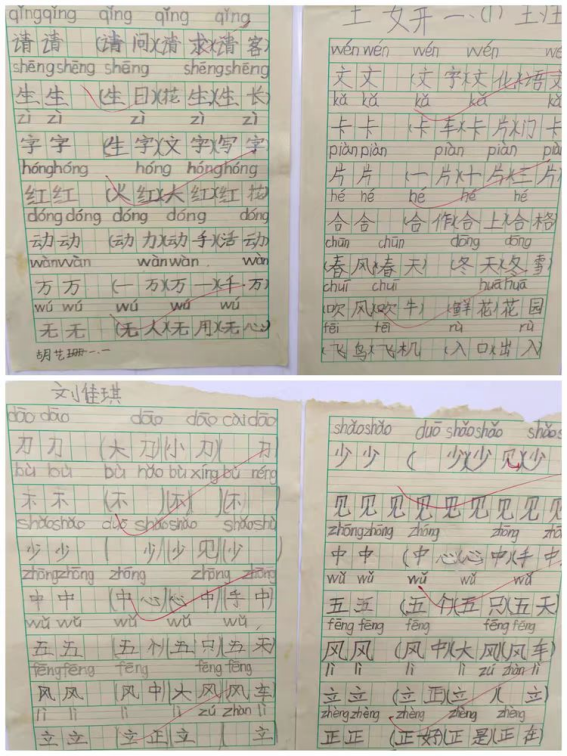 qǐngqǐng qǐng qǐng qǐng
请请(请问)(请求)(请客)
shēngshēng shēng shēngshēng
生生(生日)(花生)(生长)
zì zì zì zì zì
字字(生字)(文字)(写字)
hónghóng hóng hónghóng
红红(火红)(大红)(红花)
dóngdóng dóng dóng dóng
动动(动力)(动手)(活动)
wànwàn wànwàn wàn
万万(一万)(万一)(千万)
wú wú wú wú wú
无无(无人)(无用)(无心)
一.(1)
wénwén wén wén
文文(文字)(文化)(语文
kǎ kǎ kǎ kǎ kǎ
卡卡(卡车)(卡片)(门卡
piànpiàn piàn piàn piàn
片片(一片)(十片)(三片
hé hé hé hé hé
合合(合作)(合上)(合格
chūn chūn dōng dōng
(春风)(春天)(冬天)(冬雪
chuī chuī huāhuā
(吹风)(吹牛)(鲜花)(花园
fēi fēi rù rù
(飞鸟)(飞机)(入口)(出入
刘佳琪
dāo dāo dāo dāo cài dāo
刀刀(大刀)(小刀)( 刀
bù bù bù hǎo bù xíng bù néng
不不(不 )(不 )(不 )
shǎoshǎo duō shǎoshǎo shǎoshǎo
少少( 少)(少见)(少 )
zhōngzhōng zhōng zhōng zhōng
中中(中心)(心中)(手中)
wǔ wǔ wǔ wǔ wǔ
五五(五个)(五只)(五天)
fēngfēng fēng fēng fēng
风风(风中)(大风)(风车)
lì lì lì zú zhàn lì
立立(立正)(立 )( 立
shǎoshǎo duō shǎoshǎo shǎos
少少( 少)(少见)(少
见见见见见见见见
zhōngzhōng zhōng zhōng zhō
中中(中心)(心中)(手中
wǔ wǔ wǔ wǔ wǔ
五五(五个)(五只)(五天
fēng fēng fēng fēng fēng
风风(风中)(大风)(风车
lì lì lì zú zhàn lì
立立(立正)(立 )( 立)
zhèngzhèng zhèng zhèng zhèng
正正(正好)(正是)(正在